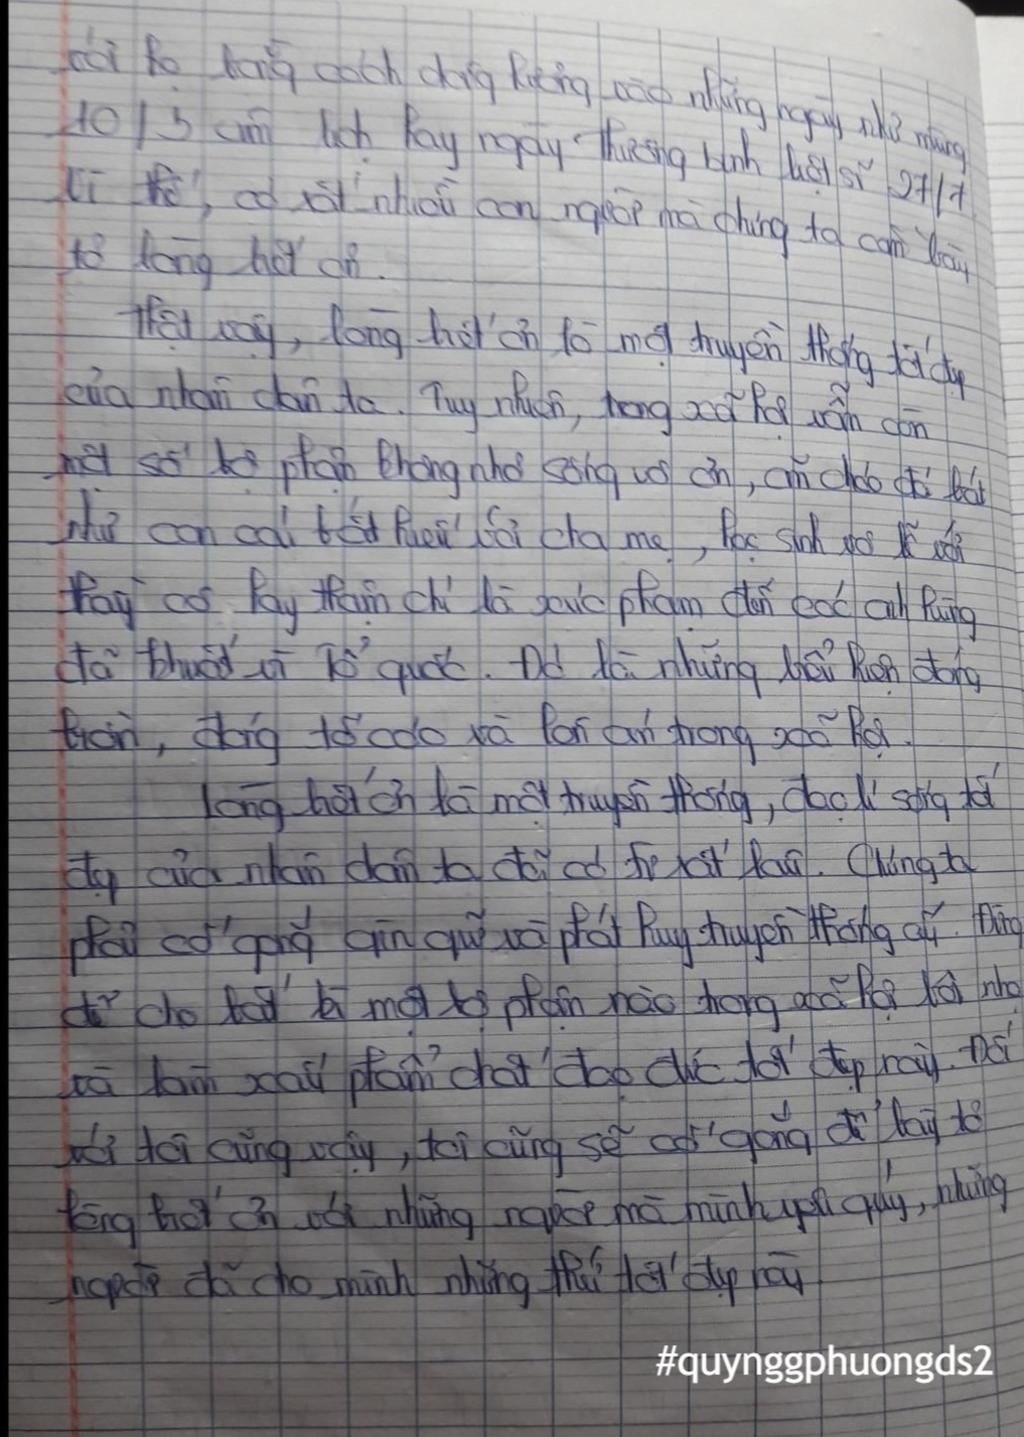 với họ bằng cách dâng hương vào những ngày như mùng
10/3 âm lịch hay ngày thương binh liệt sĩ 27/7
Vì thế, có rất nhiều con người mà chúng ta cần bày
tỏ lòng biết ơn.
Thật vậy, lòng biết ơn là một truyền thống tốt đẹp
của nhân dân ta. Tuy nhiên, trong xã hội vẫn còn
một số bộ phận không nhỏ sống vô ơn, ăn cháo đá bát
như con cái bất hiếu với cha mẹ, học sinh vô lễ với
thầy cô hay thậm chí là xúc phạm đến các anh hùng
đã khuất vì Tổ quốc. Đó là những biểu hiện đáng
đáng tố cáo và lên án trong xã hội.
Lòng biết ơn là một truyền thống, đạo lí sống tốt
đẹp của nhân dân ta đã có từ rất lâu. Chúng ta
phải cố gắng gìn giữ và phát huy truyền thống ấy. Đừng
để cho bất kì một bộ phận nào trong xã hội
và làm xấu phẩm chất đạo đức tốt đẹp này. Đối
với tôi cũng vậy, tôi cũng sẽ cố gắng để bày tỏ
lòng biết ơn với những người mà mình yêu quý, những
người đã cho mình những thứ tốt đẹp này
#quynggphuongds2